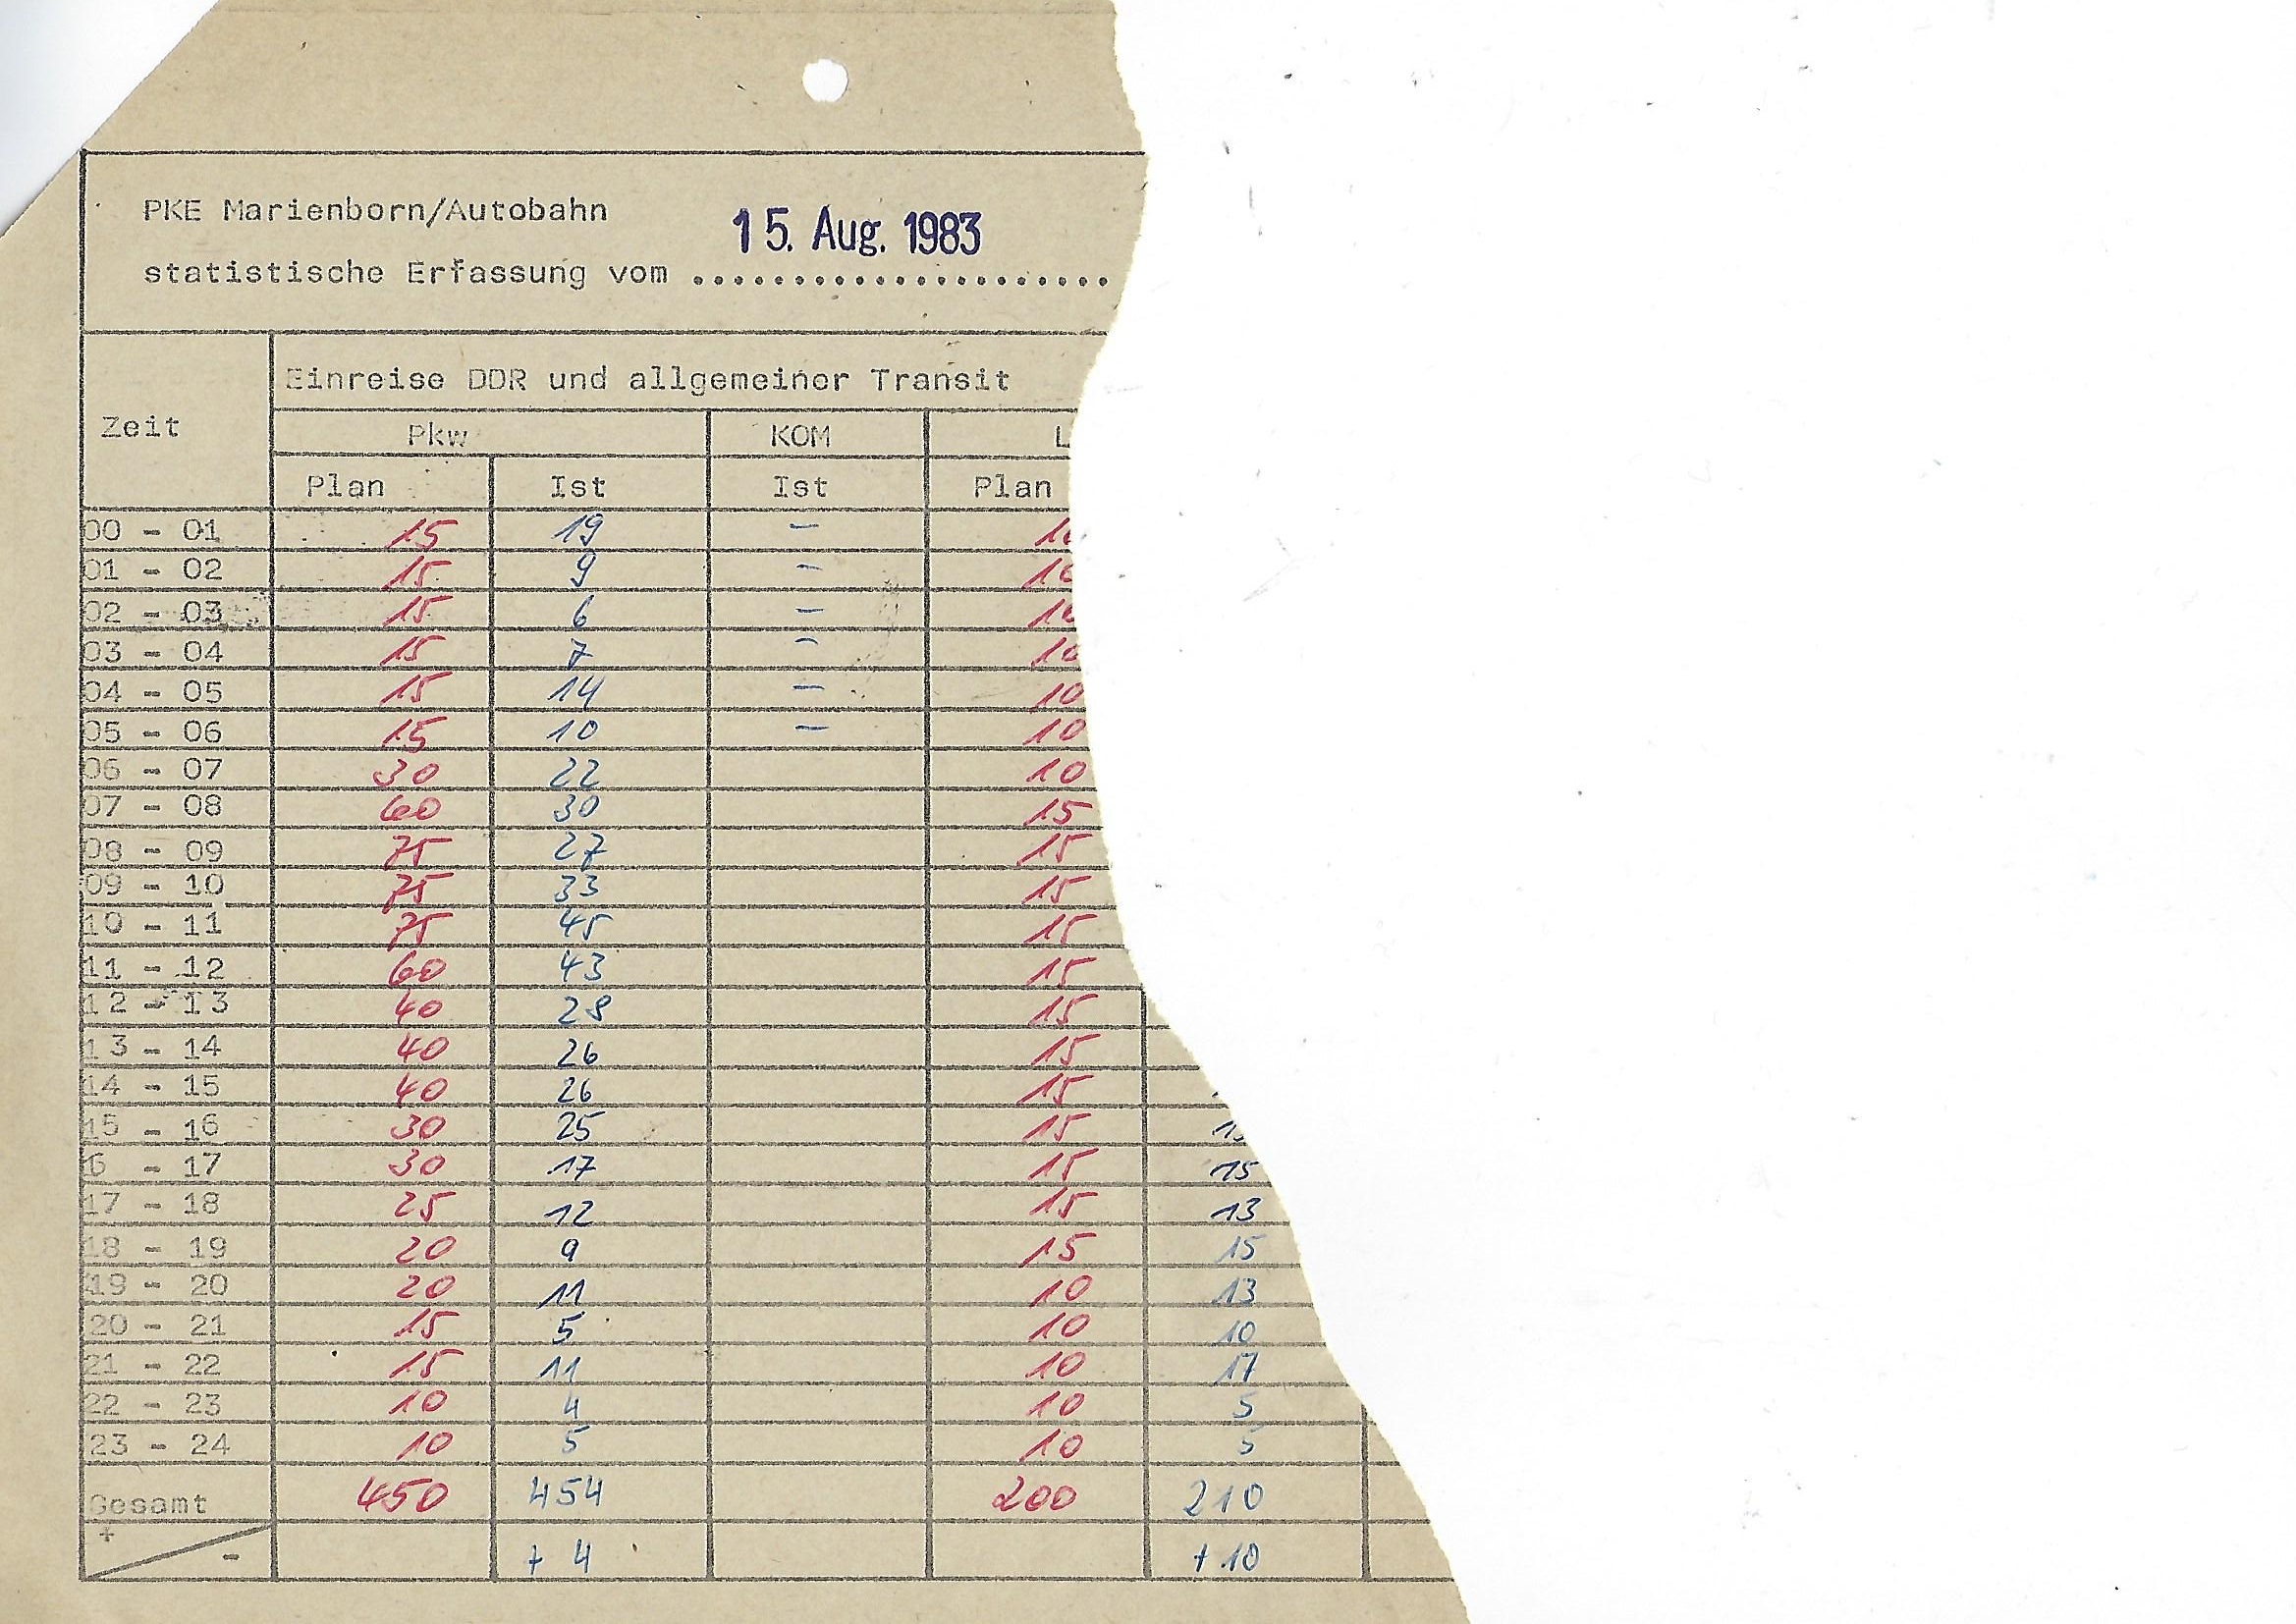 PKE Marienborn/Autobahn
15. Aug. 1983
statistische Erfassung vom ......................
Einreise DDR und allgemeiner Transit
Zeit
Pkw KOM L
Plan Ist Ist Plan
00 - 01 15 19 - 1
01 - 02 15 9 - 10
02 - 03 15 6 - 10
03 - 04 15 7 - 10
04 - 05 15 14 - 10
05 - 06 15 10 - 10
06 - 07 30 22 10
07 - 08 60 30 15
08 - 09 75 27 15
09 - 10 75 33 15
10 - 11 75 45 15
11 - 12 60 43 15
12 - 13 40 28 15
13 - 14 40 26 15
14 - 15 40 26 15
15 - 16 30 25 15
6 - 17 30 17 15 15
17 - 18 25 12 15 13
18 - 19 20 9 15 15
19 - 20 20 11 10 13
20 - 21 15 5 10 10
21 - 22 15 11 10 17
22 - 23 10 4 10 5
23 - 24 10 5 10 5
Gesamt 450 454 200 210
+ - + 4 + 10